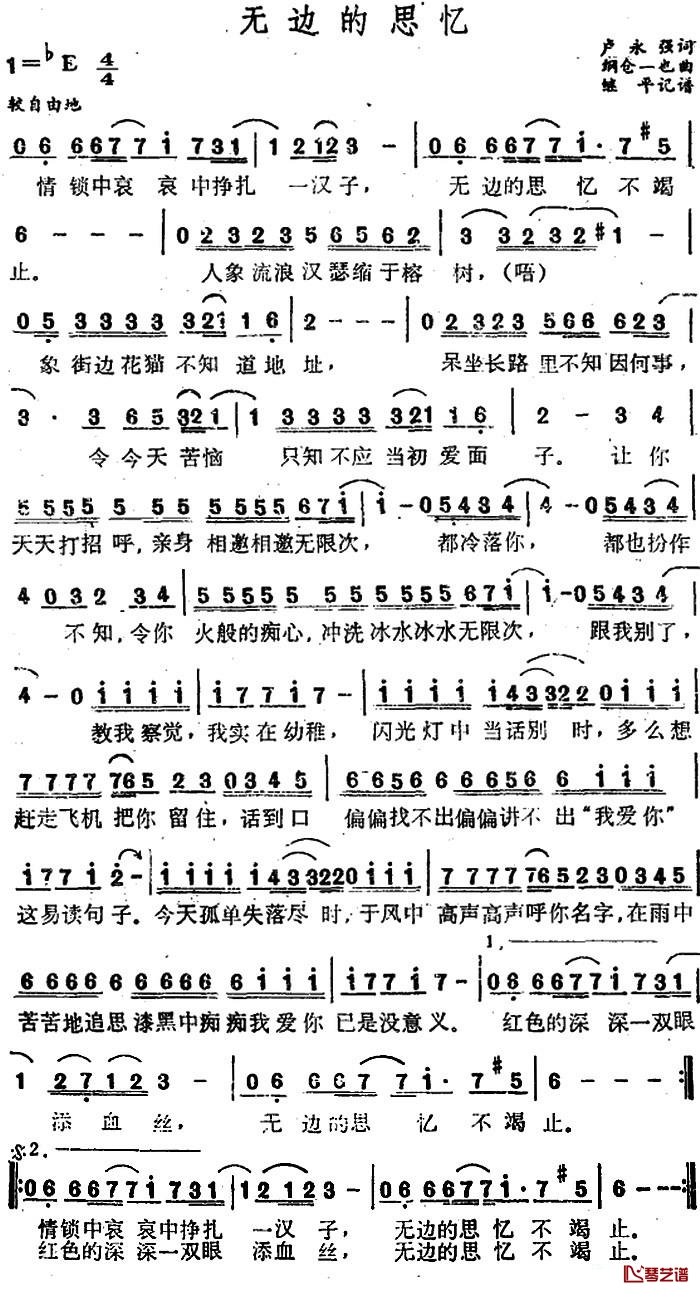 无边的思忆
1=♭E 4/4
卢永强词
纲仓一也曲
继平记谱
较自由地
0 6 6 6 7 7 i 7 3 1 | 1 2 1 2 3 - | 0 6 6 6 7 7 i · 7 #5
情锁中哀 哀中挣扎 一汉子, 无边的思 忆 不 竭
6 - - - | 0 2 3 2 3 5 6 5 6 2 | 3 3 2 3 2 #1 -
止。 人象流浪汉瑟缩于榕 树,(唔)
0 5 3 3 3 3 3 2 1 1 6 | 2 - - - | 0 2 3 2 3 5 6 6 6 2 3
象街边花猫不知道地址, 呆坐长路里不知因何事,
3 · 3 6 5 3 2 1 | 1 3 3 3 3 3 2 1 1 6 | 2 - 3 4
令今天苦恼 只知不应当初爱面 子。让你
5 5 5 5 5 5 5 5 5 5 5 5 5 6 7 i | i - 0 5 4 3 4 | i - 0 5 4 3 4
天天打招呼,亲身相邀相邀无限次, 都冷落你, 都也扮作
4 0 3 2 3 4 | 5 5 5 5 5 5 5 5 5 5 5 5 6 7 i | i - 0 5 4 3 4
不知,令你 火般的痴心,冲洗冰水冰水无限次, 跟我别了,
4 - 0 i i i i | i 7 7 i 7 - | i i i i i 4 3 3 2 2 0 i i i
教我察觉,我实在幼稚, 闪光灯中当话别 时,多么想
7 7 7 7 7 6 5 2 3 0 3 4 5 | 6 6 5 6 6 6 6 5 6 6 i i i
赶走飞机把你留住,话到口 偏偏找不出偏偏讲不出“我爱你”
i 7 7 i 2 - | i i i i i 4 3 3 2 2 0 i i i | 7 7 7 7 7 6 5 2 3 0 3 4 5
这易读句子。今天孤单失落尽 时,于风中 高声高声呼你名字,在雨中
1.
6 6 6 6 6 6 6 6 6 i i i | i 7 7 i 7 - | 0 6 6 6 7 7 i 7 3 1
苦苦地追思漆黑中痴痴我爱你 已是没意义。 红色的深 深一双眼
1 2 7 1 2 3 - | 0 6 6 6 7 7 i · 7 #5 | 6 - - - :‖
添血丝, 无边的思 忆 不竭止。
𝄋 2.
‖: 0 6 6 6 7 7 i 7 3 1 | 1 2 1 2 3 - | 0 6 6 6 7 7 i · 7 #5 | 6 - - - :‖
情锁中哀 哀中挣扎 一汉子, 无边的思 忆 不竭 止。
红色的深 深一双眼 添血丝, 无边的思 忆 不竭 止。
琴艺谱